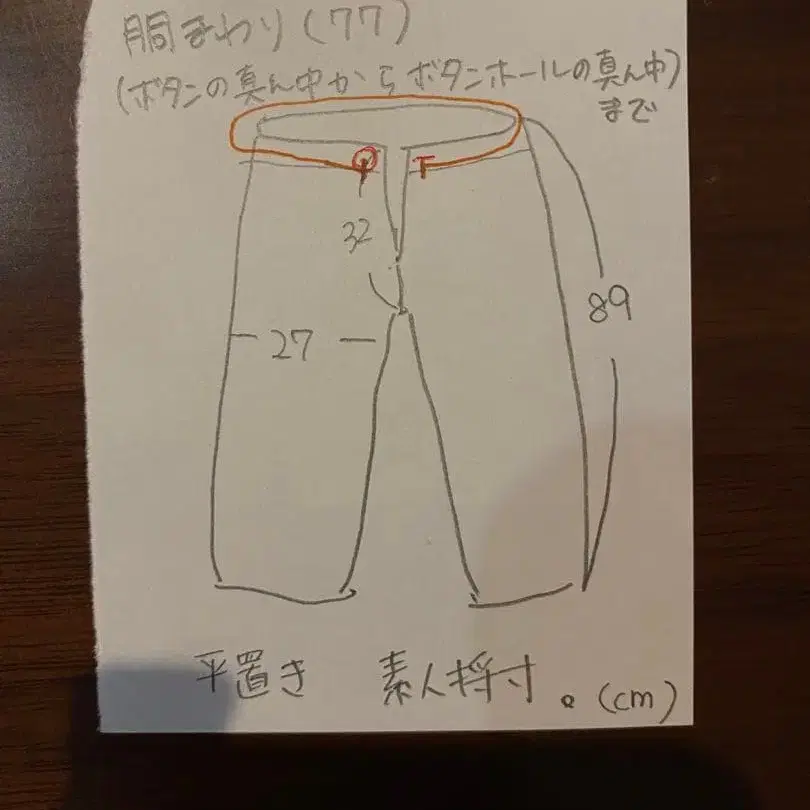 胴まわり(77)
(ボタンの真ん中からボタンホールの真ん中)
まで
32
89
27
平置き 素人採寸。(cm)